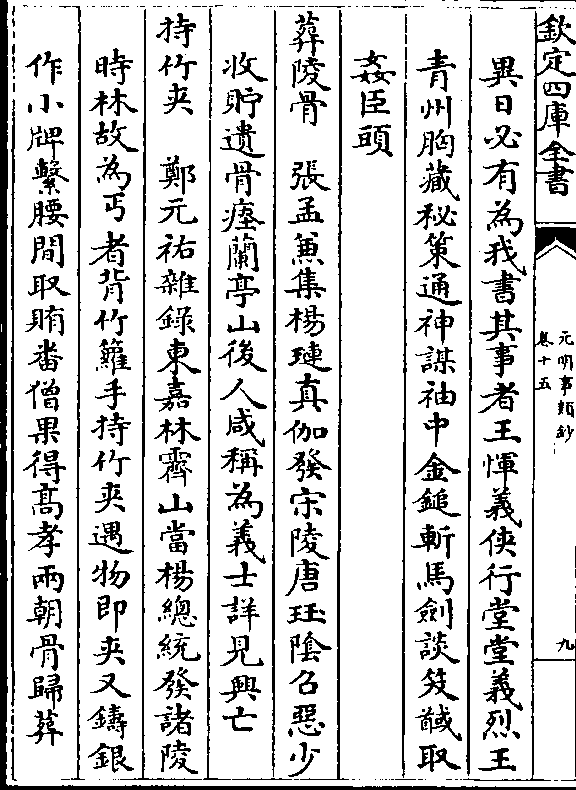 欽定四庫全書
元明事類鈔
卷十五
九
異日必有為我書其事者王惲義俠行堂堂義烈王
青州胸藏秘策通神謀袖中金鎚斬馬劍談笑馘取
姦臣頭
葬陵骨　張孟兼集楊璉真伽發宋陵唐珏陰召惡少
收貯遺骨瘞蘭亭山後人咸稱為義士詳見興亡
持竹夾　鄭元祐雜錄東嘉林霽山當楊總統發諸陵
時林故為丐者背竹籮手持竹夾遇物即夾又鑄銀
作小牌繫腰間取賄番僧果得髙孝兩朝骨歸葬